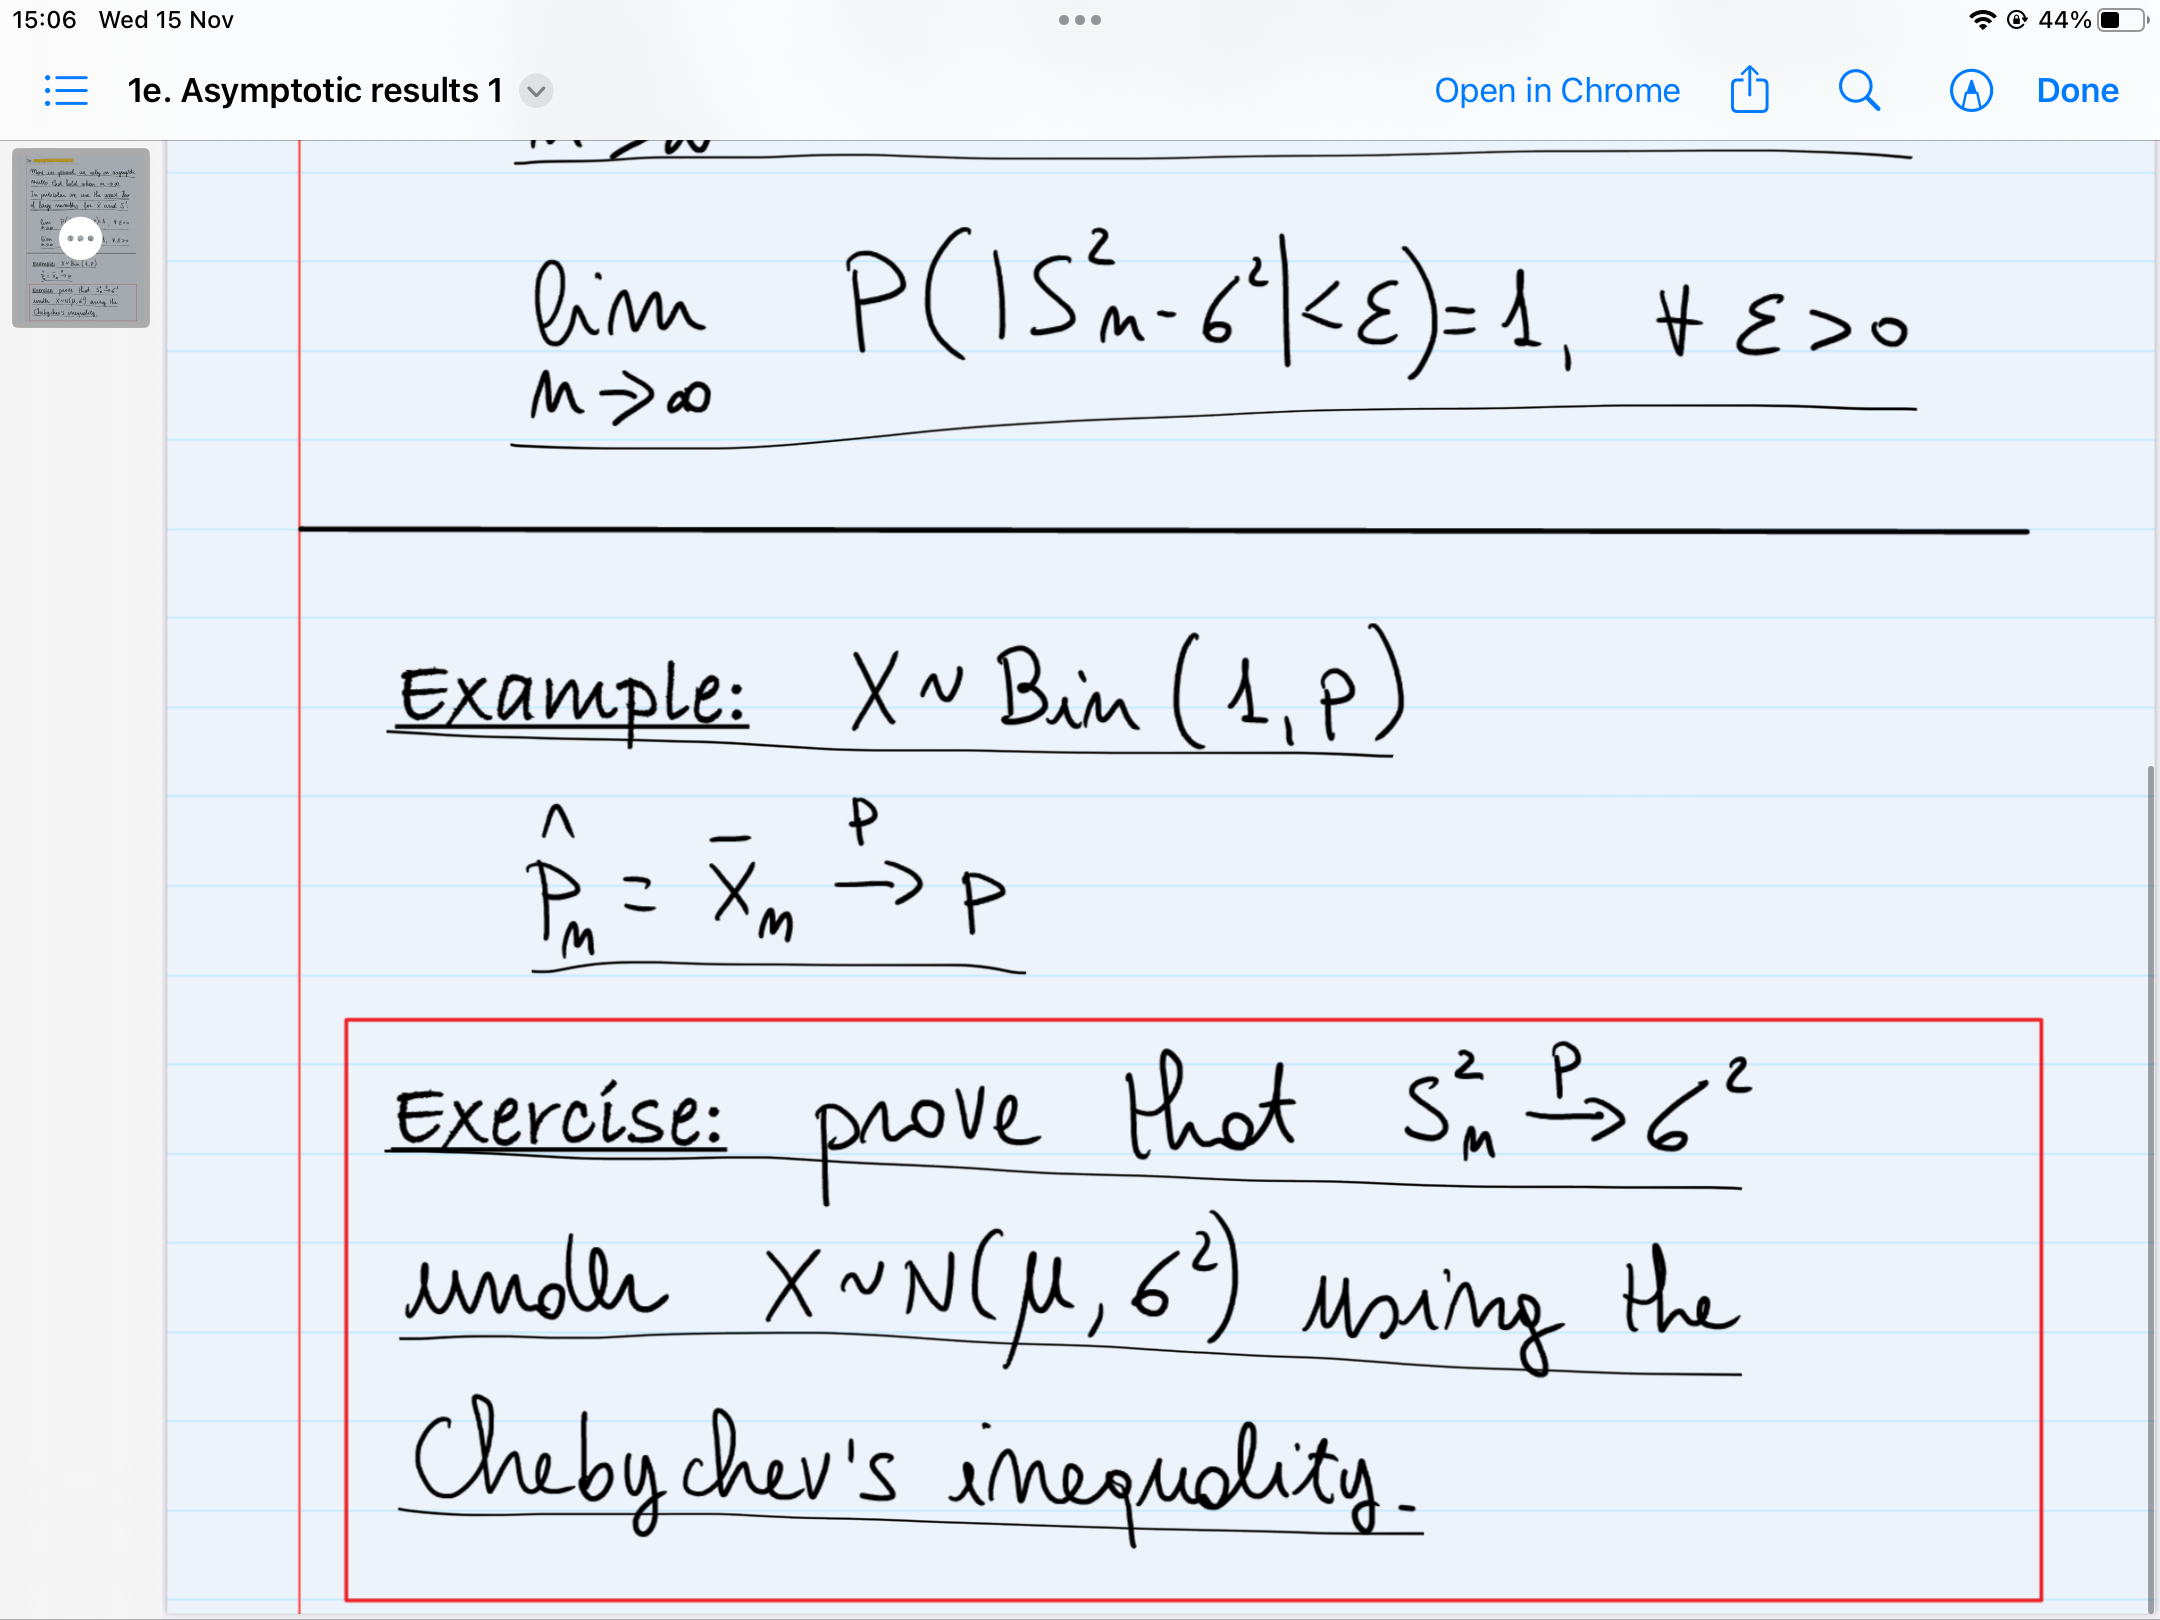 15:06 Wed 15 Nov
44%
1e. Asymptotic results 1
Open in Chrome
Done
lim P(|S²ₙ - σ²| < ε) = 1, ∀ ε > 0
n → ∞
Example: X ~ Bin (1, p)
p̂ₙ = X̄ₙ →ᴾ p
Exercise: prove that S²ₙ →ᴾ σ²
under X ~ N(μ, σ²) using the
Chebychev's inequality.